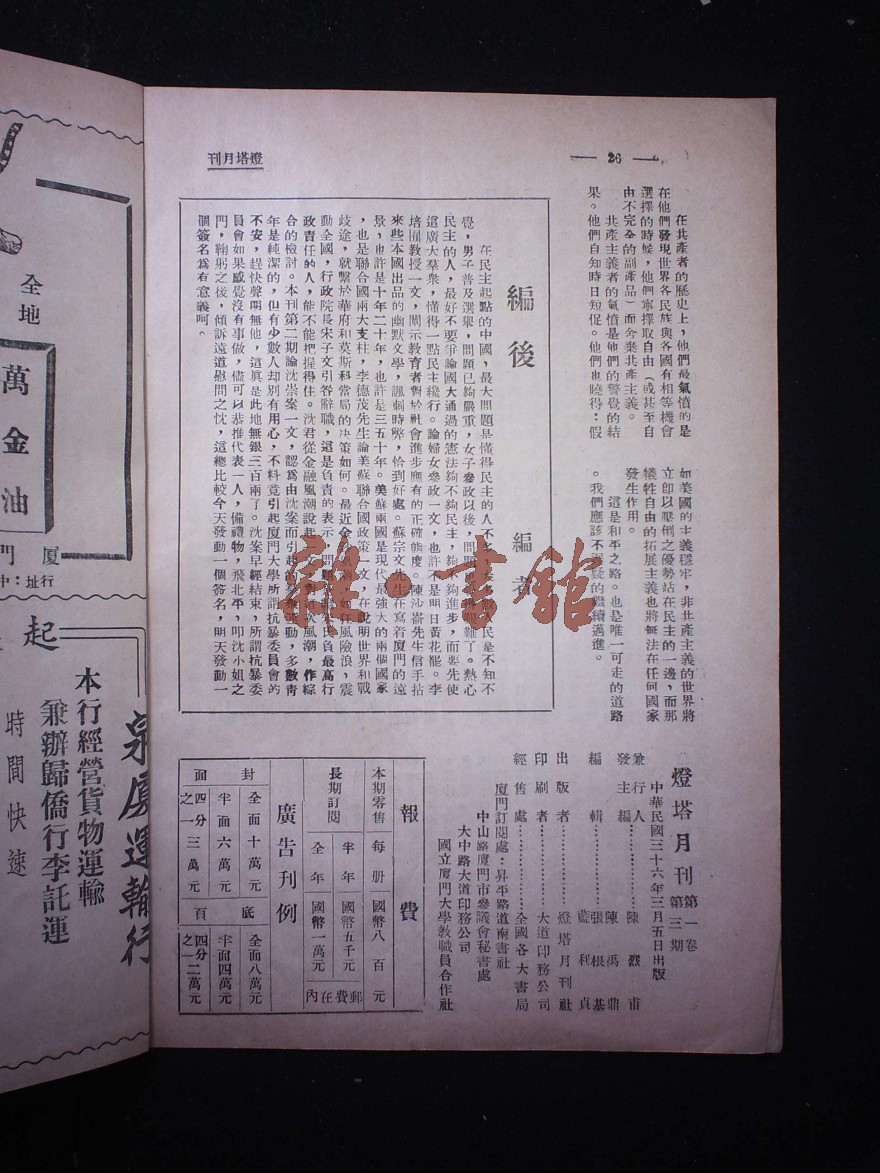 燈塔月刊
— 26 —
在共產者的歷史上，他們最氣憤的是
在他們發現世界各民族與各國有相等機會
選擇的時候，他們寧擇取自由（或甚至自
由不完全的副產品）而舍棄共產主義。
共產主義者的氣憤是他們的警覺的結
果。他們自知時日短促。他們也曉得：假
如美國的主義穩牢，非共產主義的世界將
立即以壓倒之優勢站在民主的一邊，而那
犧牲自由的拓展主義也將無法在任何國家
發生作用。
這是和平之路。也是唯一可走的道路
。我們應該不遲疑的繼續邁進。
編後
編者
在民主起點的中國，最大問題是懂得民主的人不
覺，男子普及選舉，問題已夠嚴重，女子參政以後，問題
民主的人，最好不要爭論國大通過的憲法夠不夠民主，夠不夠進步，而要先使
這廣大羣衆，懂得一點民主纔行。論婦女參政一文，也許不是明日黃花罷。李
培囿教授一文，關示教育者對於社會進步應有的正確態度。陳沙崙先生信手拈
來些本國出品的幽默文學，諷刺時弊，恰到好處。蘇宗文先生在寫着廈門的遠
景，也許是十年二十年，也許是三五十年。美蘇兩國是現代最強大的兩個國家
，也是聯合國兩大支柱，李德茂先生論美蘇聯合國政策一文，在說明世界和戰
歧途，就繫於華府和莫斯科當局的決策如何。最近金
動全國，行政院長宋子文引咎辭職，這是負責的表示
政責任的人，能不能把握得住。沈君從金融風潮說起一文，對這次風潮，作綜
合的檢討。本刊第二期論沈崇案一文，認為由沈案而引起的
年是純潔的，但有少數人却別有用心，不料竟引起廈門大學所謂抗暴委員會的
不安，趕快聲明無他，這真是此地無銀三百兩了。沈案早經結束，所謂抗暴委
員會如果感覺沒有事做，儘可以恭推代表一人，備禮物，飛北平，叩沈小姐之
門，鞠躬之後，傾訴遠道慰問之忱，這總比較今天發動一個簽名，明天發動一
個簽名為有意義呵。
燈塔月刊 第一卷 第三期
中華民國三十六年三月五日出版
兼發行人
主編
陳烈甫
編輯
陳禹鼎
張根基
藍利貞
出版者 燈塔月刊社
印刷者 大道印務公司
經售處 全國各大書局
廈門訂閱處：昇平路道南書社
中山路廈門市參議會秘書處
大中路大道印務公司
國立廈門大學教職員合作社
報費
本期零售 每册 國幣八百元
長期訂閱
半年 國幣五千元
全年 國幣一萬元
郵費在內
廣告刊例
封面
全面十萬元
半面六萬元
四分之一三萬元
底頁
全面八萬元
半面四萬元
四分之一二萬元
全地
萬金油
廈門
行址：中
起
泉廈運輸行
本行經營貨物運輸
兼辦歸僑行李託運
時間快速
龍·書館